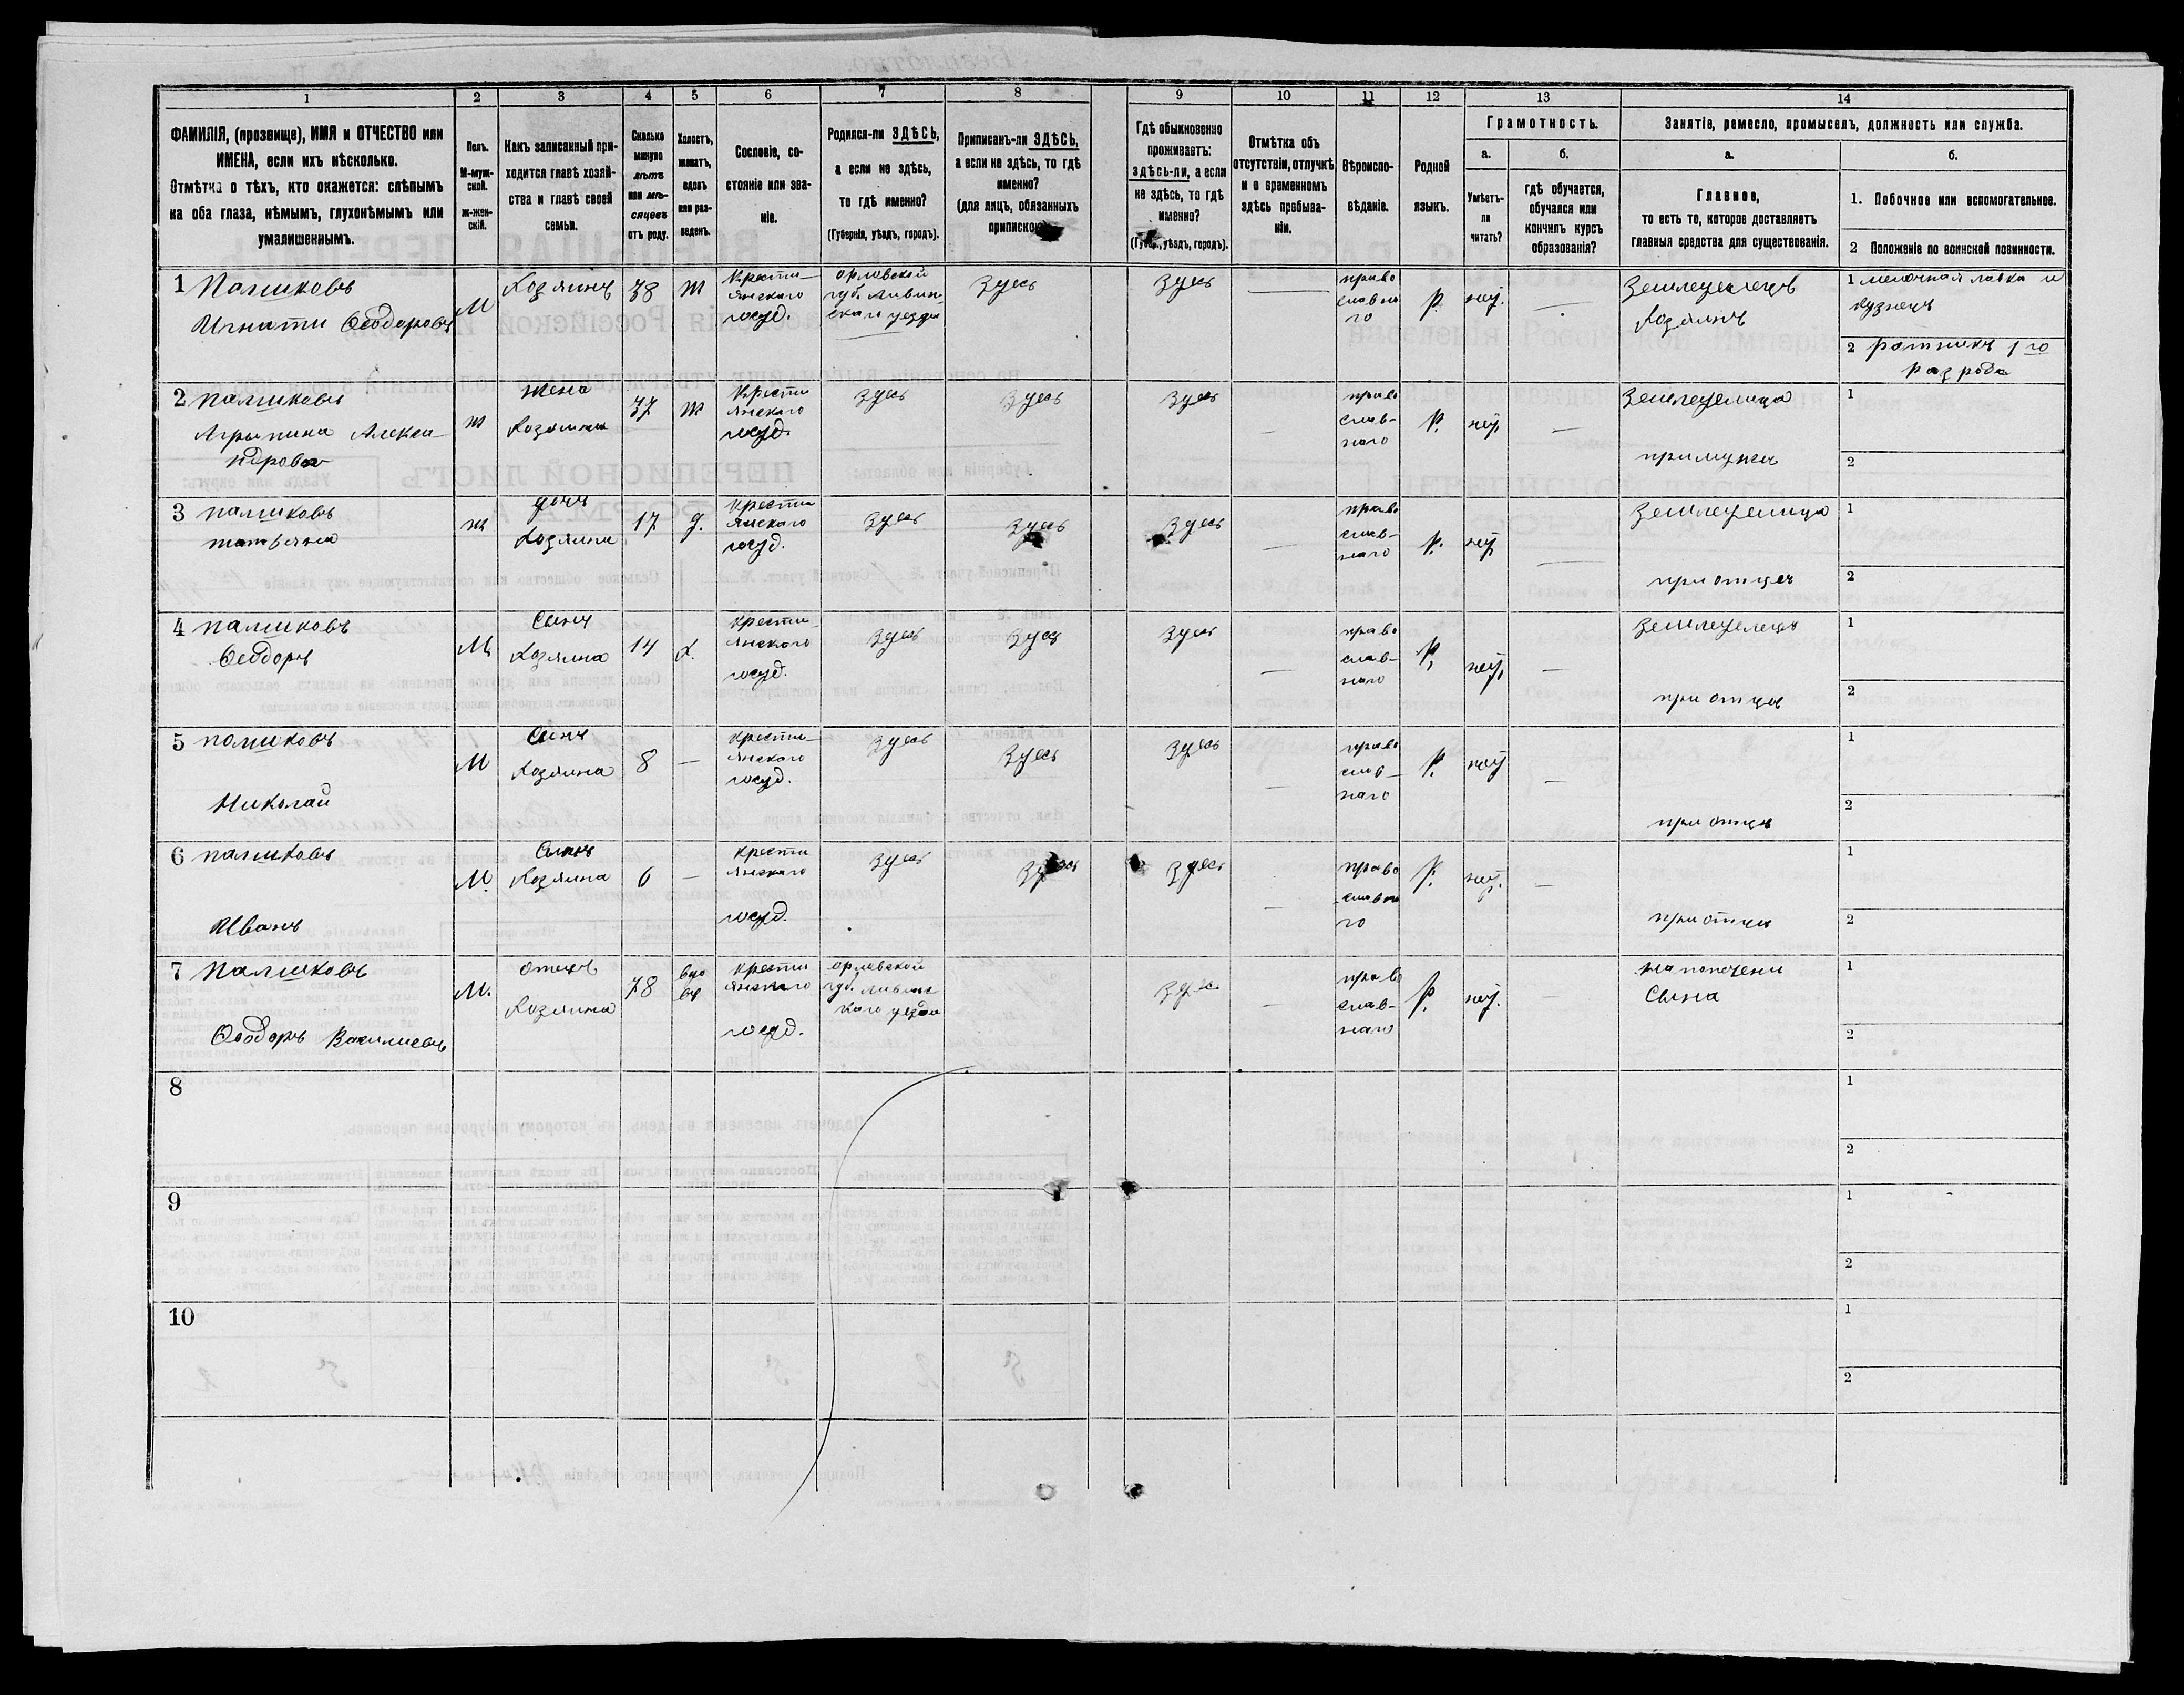 1 2 3 4 5 6 7 8 9 10 11 12 13 14
ФАМИЛІЯ, (прозвище), ИМЯ и ОТЧЕСТВО или
ИМЕНА, если ихъ нѣсколько.
Отмѣтка о тѣхъ, кто окажется: слѣпымъ
на оба глаза, нѣмымъ, глухонѣмымъ или
умалишеннымъ.
Полъ.
М-муж-
ской.
ж-жен-
скій.
Какъ записанный при-
ходится главѣ хозяй-
ства и главѣ своей
семьи.
Сколько
минуло
лѣтъ
или мѣ-
сяцевъ
отъ роду.
Холостъ,
женатъ,
вдовъ
или раз-
веденъ.
Сословіе, со-
стояніе или зва-
ніе.
Родился-ли ЗДѢСЬ,
а если не здѣсь,
то гдѣ именно?
(Губернія, уѣздъ, городъ).
Приписанъ-ли ЗДѢСЬ,
а если не здѣсь, то гдѣ
именно?
(для лицъ, обязанныхъ
припискою
Гдѣ обыкновенно
проживаетъ:
здѣсь-ли, а если
не здѣсь, то гдѣ
именно?
(Губер., уѣздъ, городъ).
Отмѣтка объ
отсутствіи, отлучкѣ
и о временномъ
здѣсь пребыва-
ніи.
Вѣроиспо-
вѣданіе.
Родной
языкъ.
Грамотность.
а.
Умѣетъ-
ли
читать?
б.
гдѣ обучается,
обучался или
кончилъ курсъ
образованія?
Занятіе, ремесло, промыселъ, должность или служба.
а.
Главное,
то есть то, которое доставляетъ
главныя средства для существованія.
б.
1. Побочное или вспомогательное.
2 Положеніе по воинской повинности.
1 Пашковъ
Игнати Ѳеодоровъ
М
Хозяинъ
38
ж
Крести-
янскаго
госуд.
орловской
губ. Ливин
скаго уезда
Здесь
Здесь
—
право
славна
го
р.
неу.
—
Земледелецъ
Хозяинъ
1 мелочная лавка и
кузнецъ
2 ратникъ 1 го
разрода
2 пашковъ
Агрыпина Алекса-
ндрова
ж
жена
Хозяина
37
ж
Крести
янскаго
госуд.
здесь
здесь
здесь
—
право
слав-
наго
р.
неу.
—
Земледелица
при мужеъ
1
2
3 пашковъ
татьяна
ж
дочъ
Хозяина
17
д.
крести
янскаго
госуд.
здесь
здесь
здесь
—
право
слав-
наго
р.
неу
—
Земледелица
при отцеъ
1
2
4 пашковъ
Ѳеодоръ
М
Сынъ
Хозяина
14
х.
крести-
янскаго
госуд.
здесь
здесь
здесь
—
право
слав-
наго
р,
неу,
—
Земледелецъ
при отцеъ
1
2
5 пашковъ
Николай
М
Сынъ
Хозяина
8
—
крести-
янскаго
госуд.
здесь
здесь
здесь
—
право
слав-
наго
р.
неу
—
при отцеъ
1
2
6 пашковъ
Иванъ
М.
Сынъ
Хозяина
6
—
крести
янскаго
госуд.
здесь
здесь
здесь
—
право
славна
го
р.
неу.
—
при отцеъ
1
2
7 Пашковъ
Ѳеодоръ Василиевъ
М.
отецъ
Хозяина
78
вдо
въ
крести
янскаго
госуд.
орловской
губ. ливинс
каго уезда
здесь
—
право
слав-
наго
р.
неу.
—
на попечени
Сына
1
2
8
1
2
9
1
2
10
1
2